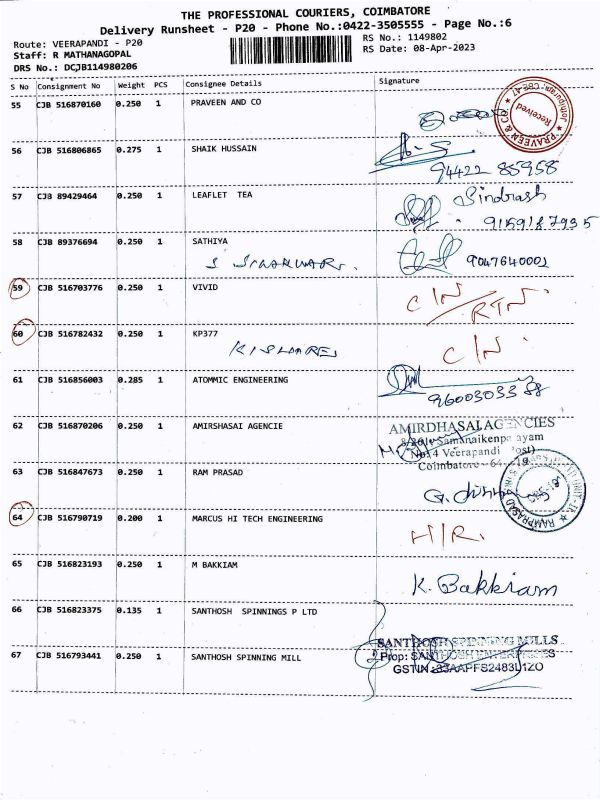 THE PROFESSIONAL COURIERS, COIMBATORE
Delivery Runsheet - P20 - Phone No.:0422-3505555 - Page No.:6
Route: VEERAPANDI - P20
RS No.: 1149802
Staff: R MATHANAGOPAL
RS Date: 08-Apr-2023
DRS No.: DCJB114980206
S No Consignment No Weight PCS Consignee Details Signature
55 CJB 516870160 0.250 1 PRAVEEN AND CO
PRAVEEN & CO
Received
56 CJB 516806865 0.275 1 SHAIK HUSSAIN
94422 85958
57 CJB 89429464 0.250 1 LEAFLET TEA
9159187935
58 CJB 89376694 0.250 1 SATHIYA
9047640002
59 CJB 516703776 0.250 1 VIVID C/N/RTN
60 CJB 516782432 0.250 1 KP377 C/N
61 CJB 516856003 0.285 1 ATOMMIC ENGINEERING
9600303388
62 CJB 516870206 0.250 1 AMIRSHASAI AGENCIE
AMIRDHASAI AGENCIES
Veerapandi
Coimbatore
63 CJB 516847673 0.250 1 RAM PRASAD
64 CJB 516790719 0.200 1 MARCUS HI TECH ENGINEERING H/R.
65 CJB 516823193 0.250 1 M BAKKIAM K. Bakkiam
66 CJB 516823375 0.135 1 SANTHOSH SPINNINGS P LTD
SANTHOSH SPINNING MILLS
67 CJB 516793441 0.250 1 SANTHOSH SPINNING MILL
Prop: SANTHOSH ENTERPRISES